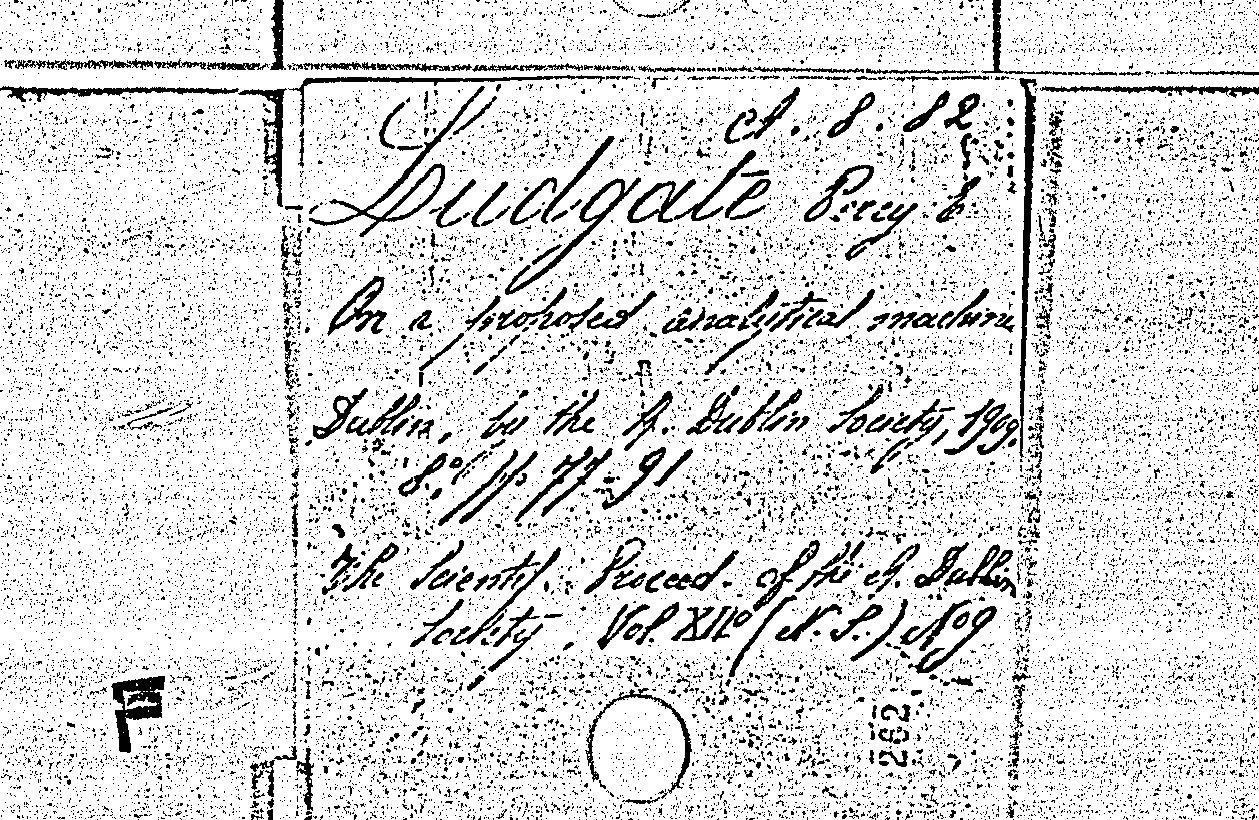 A. 8. 82
Ludgate Percy E.
On a proposed analytical machine
Dublin, by the R. Dublin Society, 1909.
8.º pp 77-91
The Scientif. Proceed. of the R. Dublin
Society. Vol. XIIº (N. S.) Nº 9
262